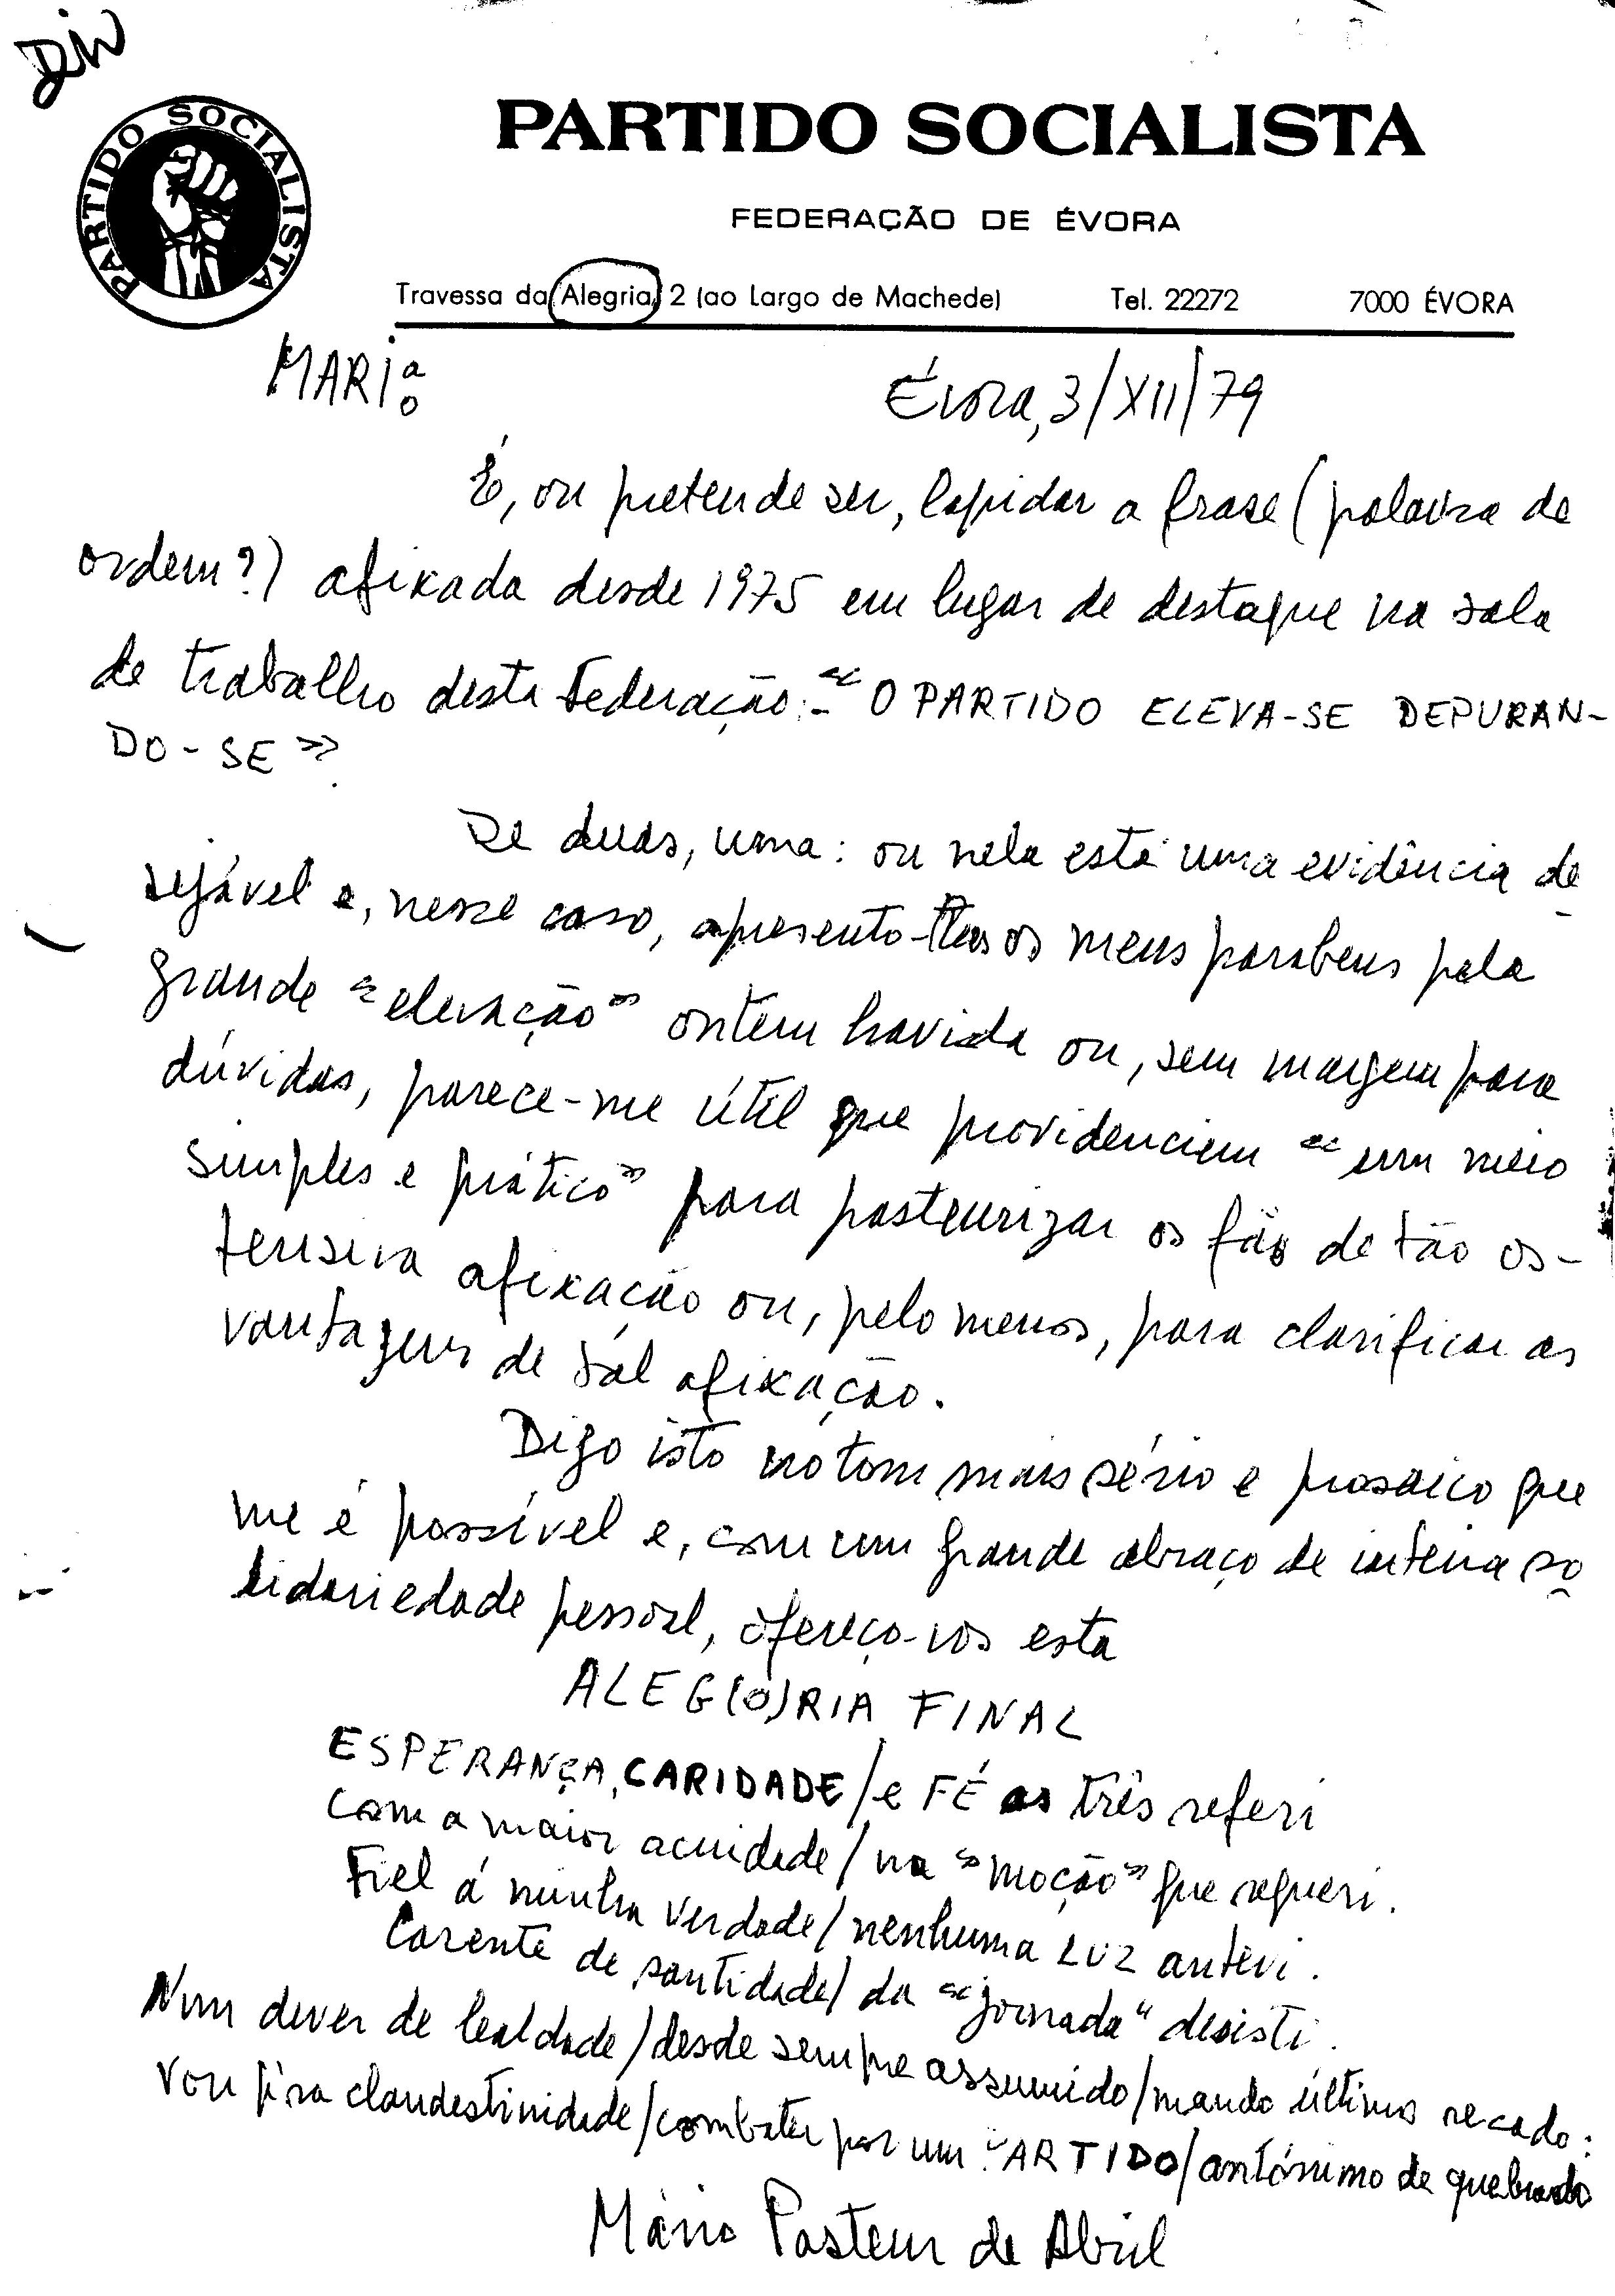 PARTIDO SOCIALISTA
PARTIDO SOCIALISTA
FEDERAÇÃO DE ÉVORA
Travessa da Alegria, 2 (ao Largo de Machede) Tel. 22272 7000 ÉVORA
MARIªº
Évora, 3/XII/79
É, ou pretende ser, lapidar a frase (palavra de
ordem?) afixada desde 1975 em lugar de destaque na sala
de trabalho desta Federação: - «O PARTIDO ELEVA-SE DEPURAN-
DO-SE».
De duas, uma: ou nela está uma evidência de
sejável e, nesse caso, apresento-vos os meus parabens pela
grande «elevação» ontem havida ou, sem margem para
dúvidas, parece-me útil que providenciem «um meio
simples e prático» para pasteurizar os fãs de tão os-
tensiva afixação ou, pelo menos, para clarificar as
vantagens de tal afixação.
Digo isto no tom mais sério e prosaico que
me é possível e, com um grande abraço de inteira so
lidariedade pessoal, ofereço-vos esta
ALEG(O)RIA FINAL
ESPERANÇA, CARIDADE/e FÉ as três referi
com a maior acuidade/na «moção» que requeri.
Fiel á minha verdade/nenhuma LUZ antevi.
Carente de santidade/da «jornada" desisti.
Num dever de lealdade/desde sempre assumido/mando último recado:
Vou p'ra clandestinidade/combater por um PARTIDO/antónimo de quebrado
Mário Pasteur de Abril